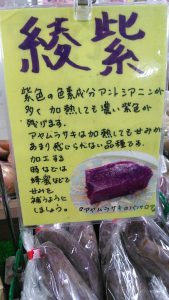 綾紫
紫色の色素成分アントシアニンが
多く加熱しても濃い紫色が
残ります。
アヤムラサキは加熱しても甘みが
あまり感じられない品種です。
加工する
時などは
蜂蜜などで
甘みを
補うように
しましょう。